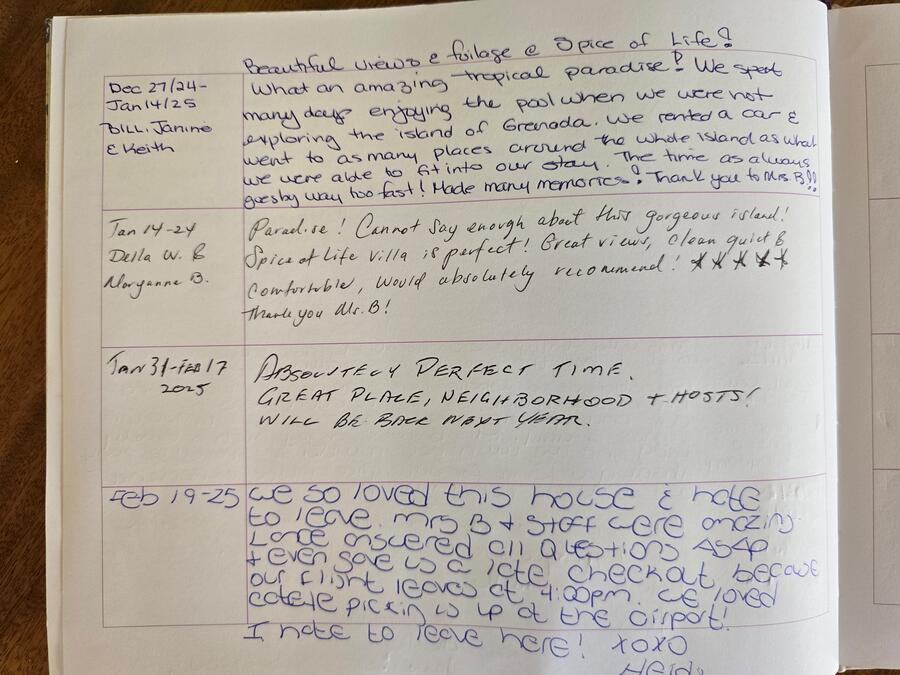 Beautiful views & foilage @ Spice of Life!
Dec 27/24-
Jan 14/25
BILL, Janine
& Keith
What an amazing tropical paradise! We spent
many days enjoying the pool when we were not
exploring the island of Grenada. We rented a car &
went to as many places around the whole island as what
we were able to fit into our stay. The time as always
goes by way too fast! Made many memories! Thank you to Mrs. B!!
Jan 14-24
Della W. &
Maryanne B.
Paradise! Cannot say enough about this gorgeous island!
Spice of Life Villa is perfect! Great views, clean quiet &
comfortable, would absolutely recommend! ★★★★★
Thank you Ms. B!
Jan 31-FEB 17
2025
ABSOLUTELY PERFECT TIME.
GREAT PLACE, NEIGHBORHOOD + HOSTS!
WILL BE BACK NEXT YEAR.
Feb 19-25
we so loved this house & hate
to leave. Mrs B + Staff were amazing.
Lance answered all Questions ASAP
+ even gave us a late checkout because
our flight leaves at 4:00pm. we loved
picking us up at the airport!
I hate to leave here! XOXO
Heidi